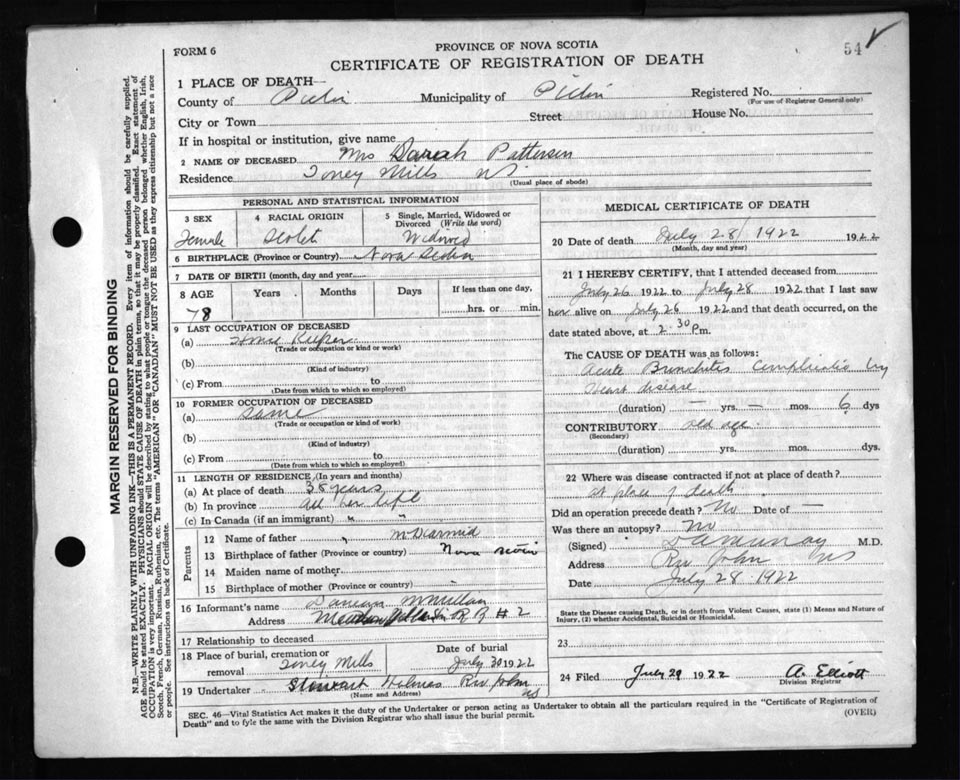 FORM 6
PROVINCE OF NOVA SCOTIA
54
CERTIFICATE OF REGISTRATION OF DEATH
1 PLACE OF DEATH—
County of Pictou Municipality of Pictou Registered No.
(For use of Registrar General only)
City or Town Street House No.
If in hospital or institution, give name
2 NAME OF DECEASED Mrs Patterson
Residence Toney Mills NS
(Usual place of abode)
PERSONAL AND STATISTICAL INFORMATION
3 SEX 4 RACIAL ORIGIN 5 Single, Married, Widowed or Divorced (Write the word)
Female Scotch Widowed
6 BIRTHPLACE (Province or Country) Nova Scotia
7 DATE OF BIRTH (month, day and year)
8 AGE Years Months Days If less than one day,
78 hrs. or min.
9 LAST OCCUPATION OF DECEASED
(a) House Keeper
(Trade or occupation or kind or work)
(b)
(Kind of industry)
(c) From to
(Date from which to which so employed)
10 FORMER OCCUPATION OF DECEASED
(a) Same
(Trade or occupation or kind of work)
(b)
(Kind of industry)
(c) From to
(Date from which to which so employed)
11 LENGTH OF RESIDENCE (In years and months)
(a) At place of death 38 years
(b) In province all her life
(c) In Canada (if an immigrant) " "
Parents
12 Name of father McDearmid
13 Birthplace of father (Province or country) Nova Scotia
14 Maiden name of mother
15 Birthplace of mother (Province or country)
16 Informant's name McMillan
Address R R # 2
17 Relationship to deceased
18 Place of burial, cremation or removal Toney Mills Date of burial July 30 1922
19 Undertaker Stewart Holmes Riv John NS
(Name and Address)
MEDICAL CERTIFICATE OF DEATH
20 Date of death July 28/1922 1922
(Month, day and year)
21 I HEREBY CERTIFY, that I attended deceased from
July 26 1922 to July 28 1922 that I last saw
her alive on July 26 1922 and that death occurred, on the
date stated above, at 2.30 p.m.
The CAUSE OF DEATH was as follows:
Acute Brunchites Complicated by
Heart disease
(duration) — yrs. — mos. 6 dys
CONTRIBUTORY old age
(Secondary)
(duration) yrs. mos. dys.
22 Where was disease contracted if not at place of death?
at place of death
Did an operation precede death? No Date of —
Was there an autopsy? No
(Signed) M.D.
Address Riv John NS
Date July 28 1922
State the Disease causing Death, or in death from Violent Causes, state (1) Means and Nature of
Injury, (2) whether Accidental, Suicidal or Homicidal.
23
24 Filed July 29 1922 A. Elliott
Division Registrar
SEC. 46—Vital Statistics Act makes it the duty of the Undertaker or person acting as Undertaker to obtain all the particulars required in the "Certificate of Registration of
Death" and to fyle the same with the Division Registrar who shall issue the burial permit. (OVER)
MARGIN RESERVED FOR BINDING
N.B.—WRITE PLAINLY WITH UNFADING INK—THIS IS A PERMANENT RECORD. Every item of information should be carefully supplied.
AGE should be stated EXACTLY. PHYSICIANS should STATE CAUSE OF DEATH in plain terms, so that it may be properly classified. Exact statement of
OCCUPATION is very important. RACIAL ORIGIN will be described by stating to what people or tongue the deceased person belonged whether English, Irish,
Scotch, French, German, Russian, Ruthenian, etc. The terms "AMERICAN" OR "CANADIAN" MUST NOT BE USED as they express citizenship but not a race
or people. See instructions on back of Certificate.